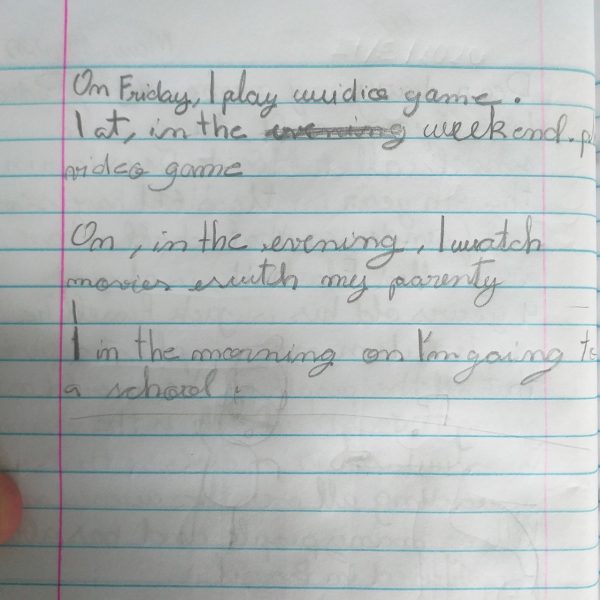 On Friday, I play wuidico game.
I at, in the evening weekend. p
video game
On, in the evening, I watch
movies ewith my parenty
I
I in the morning on I'm going to
a school.